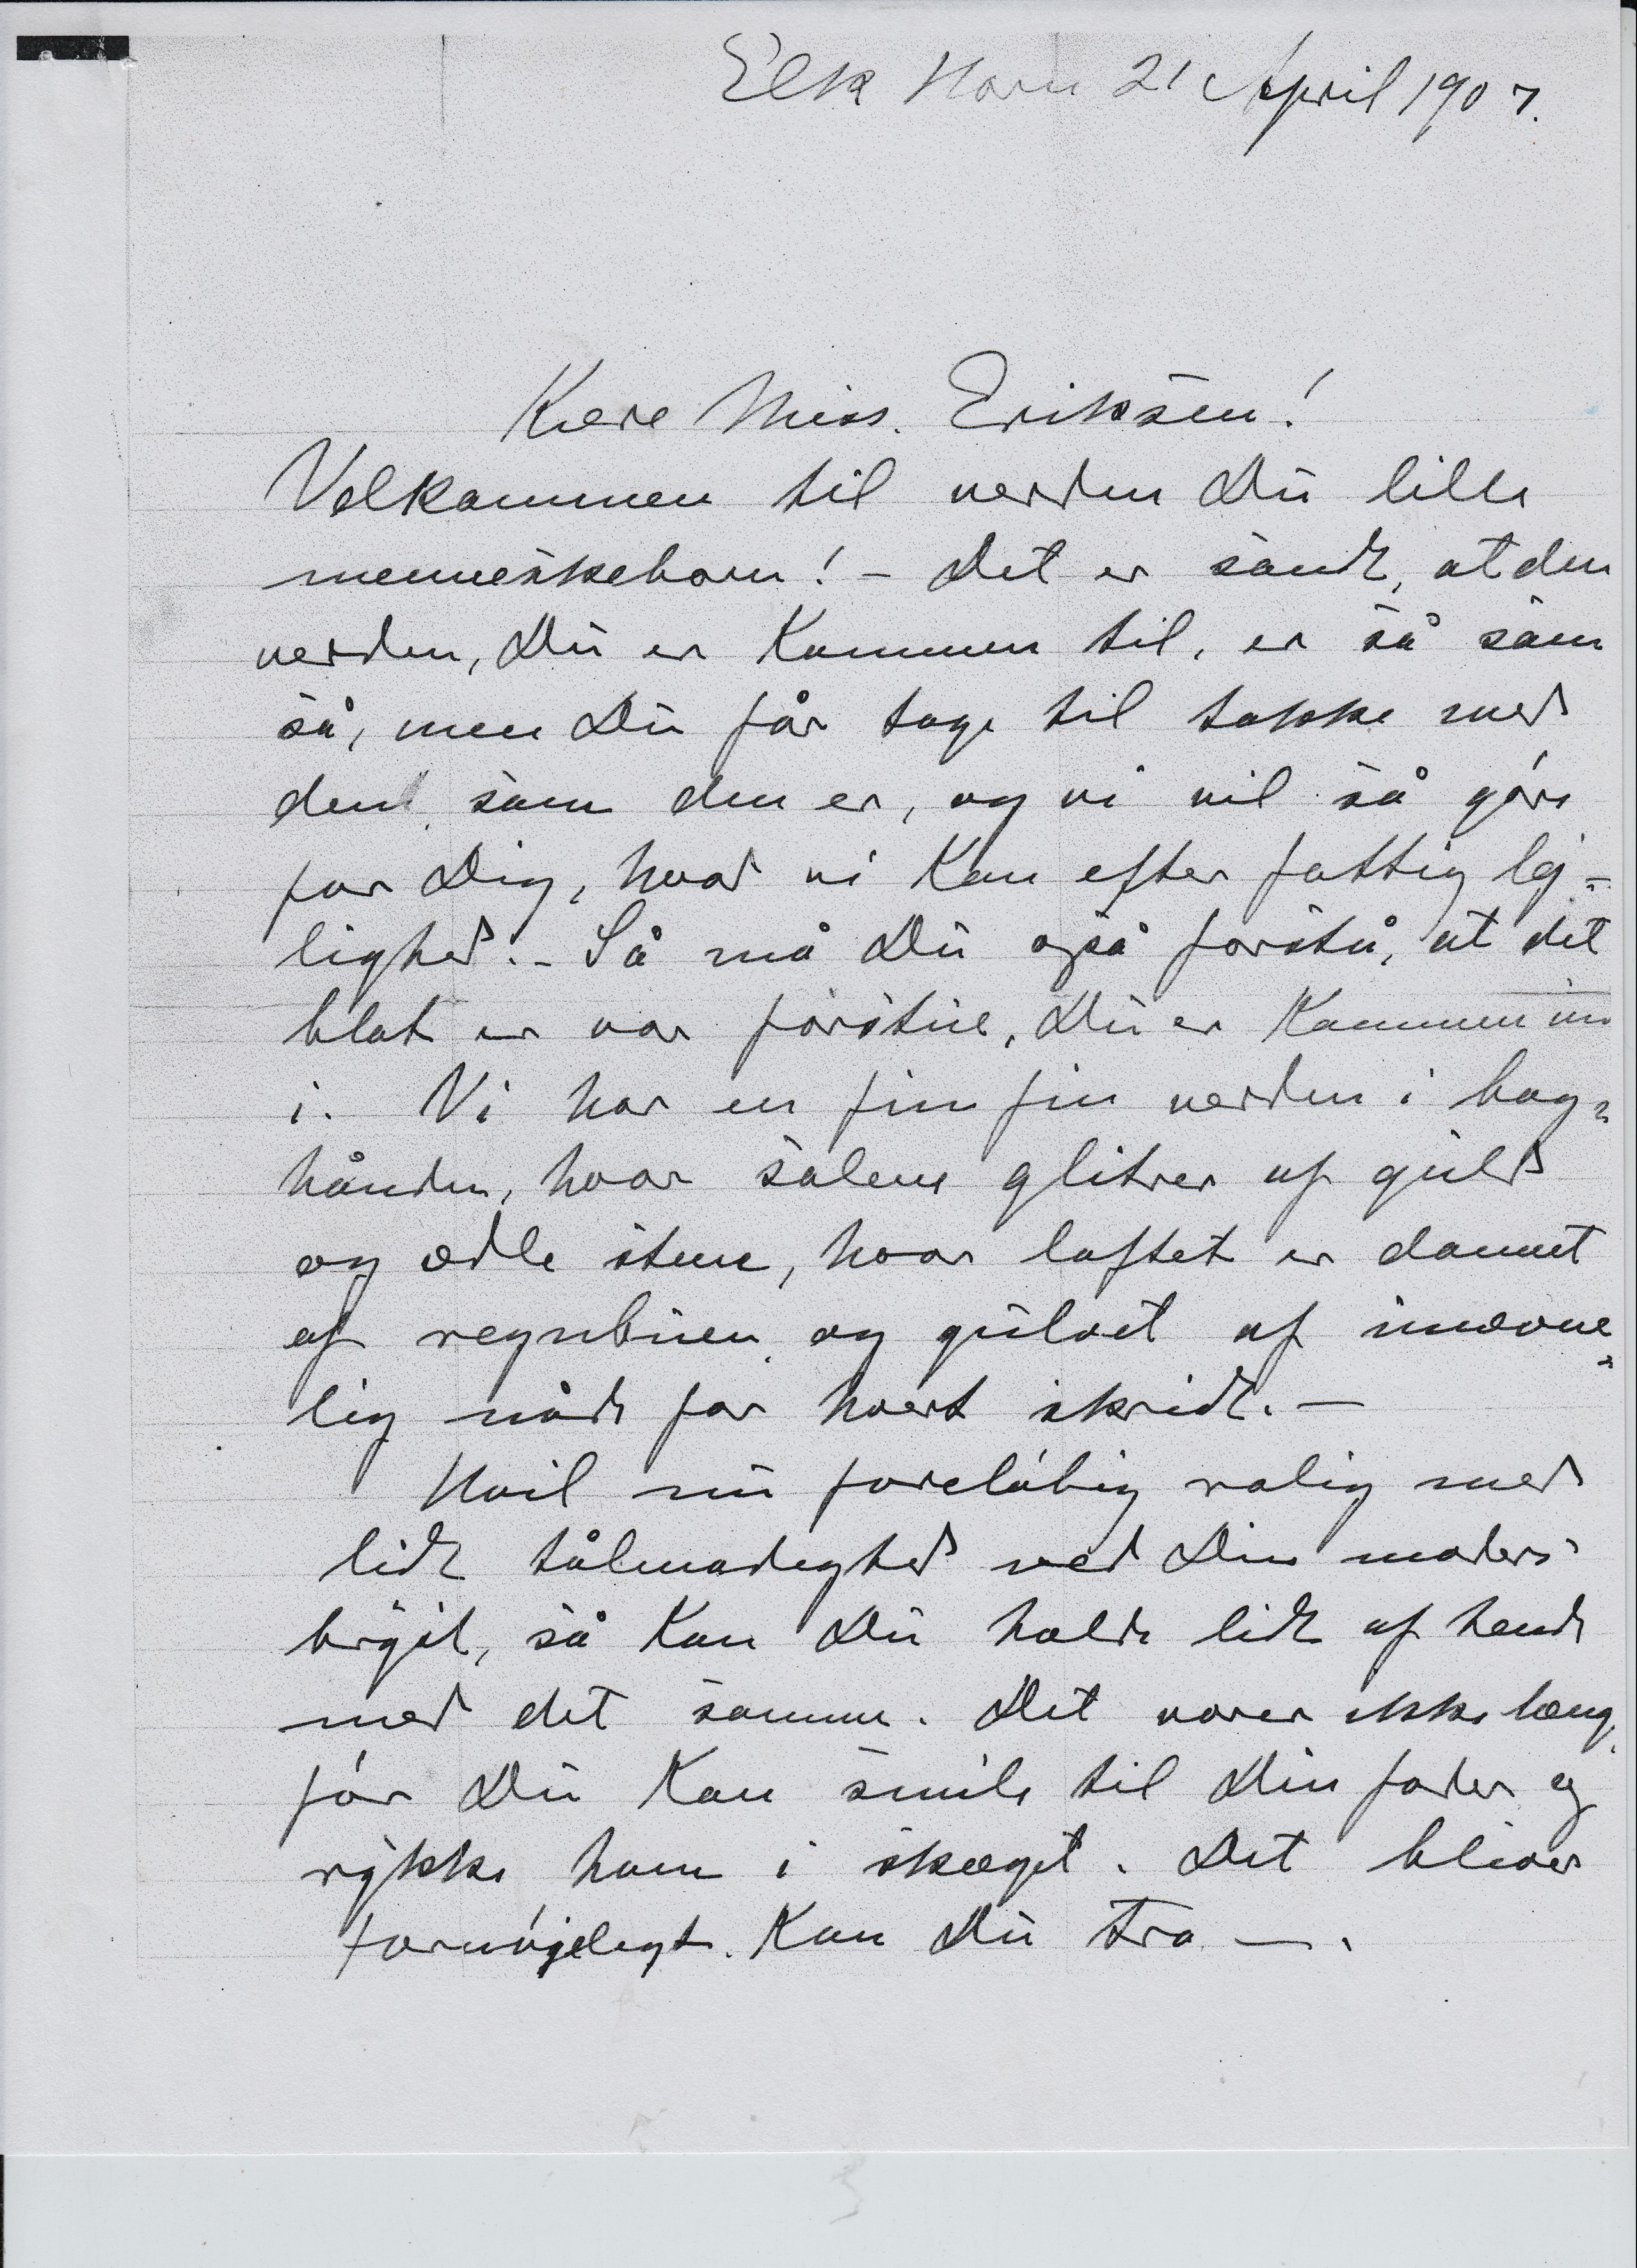 Elk Horn 21 April 1907.
Kære Miss. Eriksen!
Velkommen til verden Du lille
menneskebarn! – Det er sandt, at den
verden, Du er kommen til, er så som
så, men Du får tage til takke med
den, som den er, og vi vil så göre
for Dig, hvad vi kan efter fattig lej=
lighed. – Så må Du også forstå, at det
blot er vor forstue, Du er kommen ind
i. Vi har en fin fin verden i bag=
hånden, hvor salene glitrer af guld
og ædle stene, hvor loftet er dannet
af regnbuen og gulvet af unævne=
lig nåde for hvert skridt. –
Hvil nu forelöbig rolig med
lidt tålmodighed ved Din moders
bryst, så kan Du holde lidt af hende
med det samme. Det varer ikke længe,
för Du kan smile til Din fader og
rykke ham i skæget. Det bliver
fornöjeligt. Kan Du tro –.